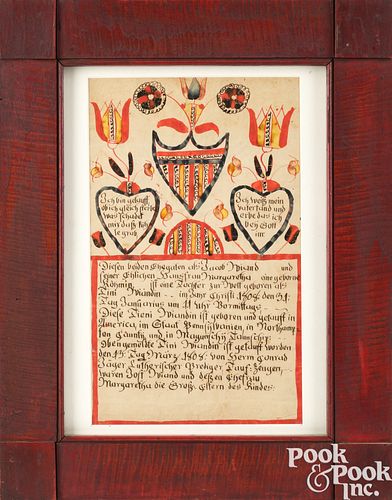 Ich bin getauft
ob ich gleich sterbe
was schadet
mir das kühle
grab
Ich weis mein
Vaterland und
erbe das ich
bey Gott
Diesen beiden Ehegaten als Jacob Wiand und
seiner Ehlichen Hausfrau Margaretha eine geborne
ist eine Tochter zur Welt geboren als
Wiandin im Jahr Christi 1808 den 31.
Tag Januarius um 11 uhr Vormittags
Diese Wiandin ist geboren und getauft in
America, im Staat Pensilvanien in Northamp
ton Caunty und in Taunschip
Obengemelte Wiandin ist getauft worden
den 15 Tag März 1808 von Herrn Conrad
Jäger Lutherischer Prediger Tauf Zeugen
waren Jost Wiand und deßen Ehefrau
Margaretha die Groß Eltern des Kindes
POOK
& POOK
Inc.